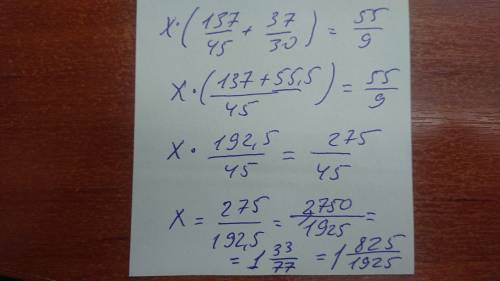 X · (137/45 + 37/30) = 55/9
X · (137 + 55,5 / 45) = 55/9
X · 192,5/45 = 275/45
X = 275/192,5 = 2750/1925 =
= 1 33/77 = 1 825/1925